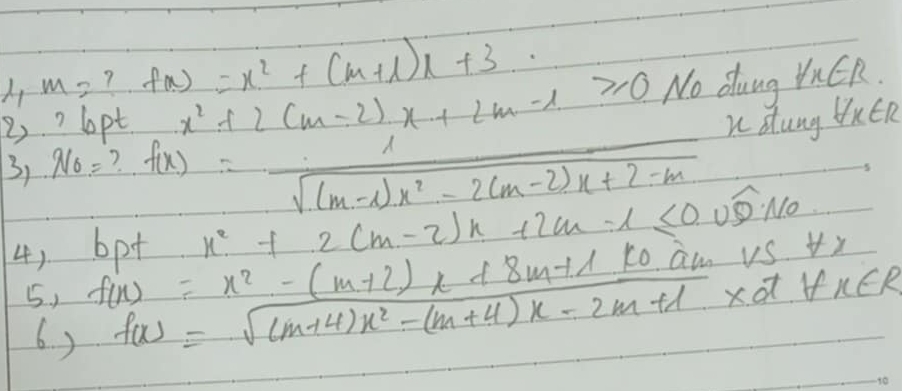 1, m = ? f(x) = x² + (m+1)x + 3.
2) ? bpt x² + 2(m-2)x + 2m-1 ≥ 0 No đúng ∀x∈R.
3) No = ? f(x) = 1/√((m-1)x² - 2(m-2)x + 2-m) x đúng ∀x∈R
4) bpt x² + 2(m-2)x + 2m-1 < 0 vô No
5) f(x) = x² - (m+2)x + 8m+1 ko âm vs ∀x
6) f(x) = √((m+4)x² - (m+4)x - 2m+1) xđ ∀x∈R
10